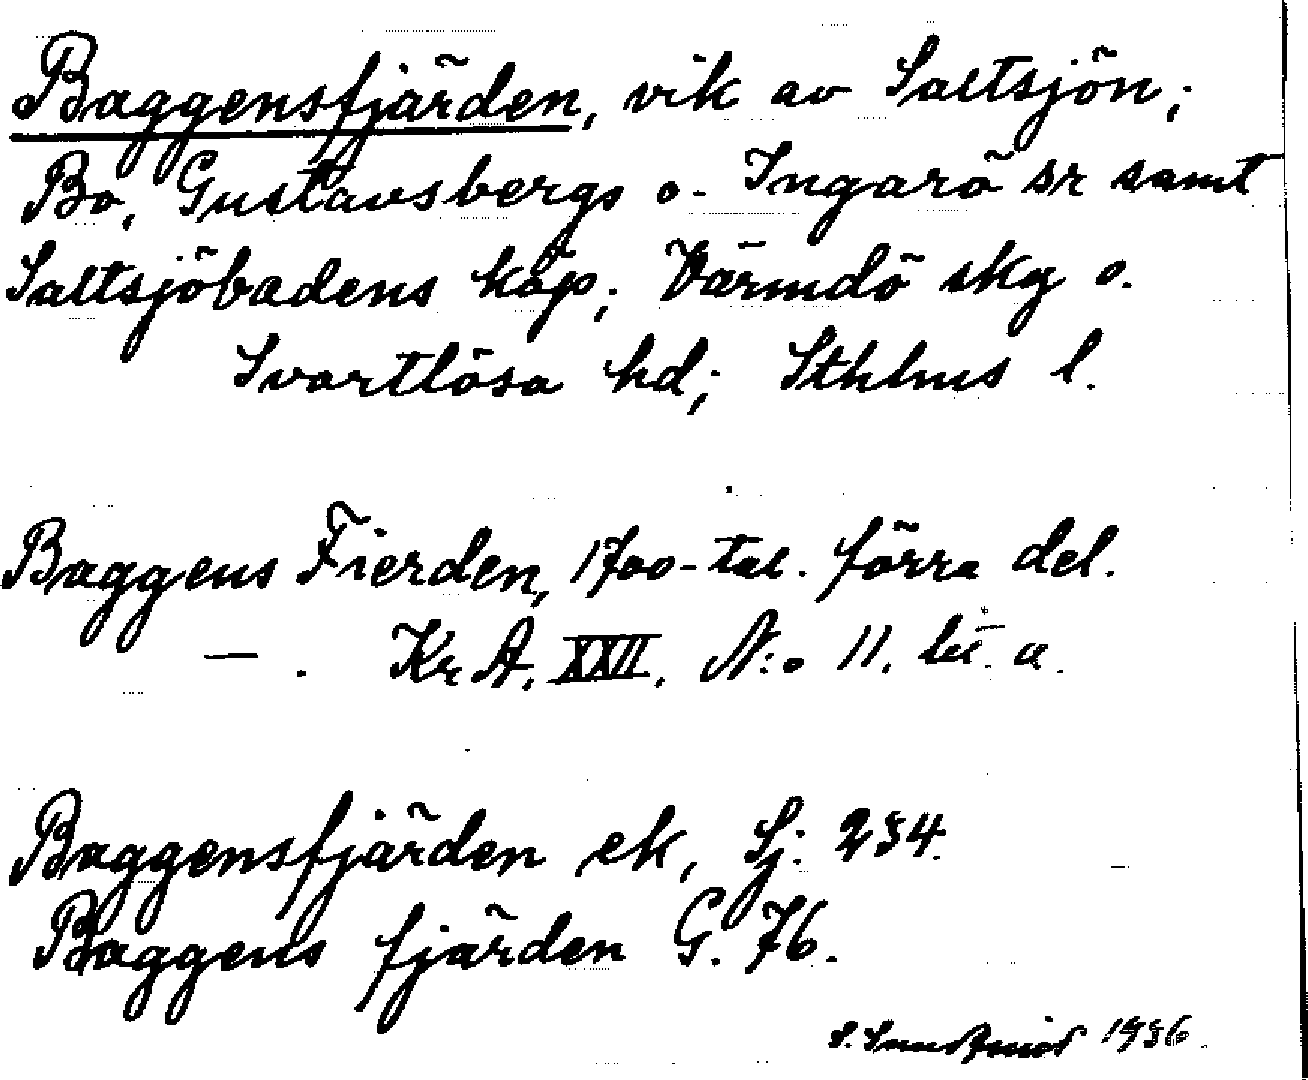 Baggensfjärden, vik av Saltsjön;
Bo, Gustavsbergs o. Ingarö sr samt
Saltsjöbadens köp; Värmdö skg o.
Svartlösa hd; Sthlms l.
Baggens Fierden, 1700-tal. förra del.
— . Kr A. XXII. N:o 11. lit. a.
Baggensfjärden ek, Sj: 234.
Baggens fjärden G. 76.
S. 1936.